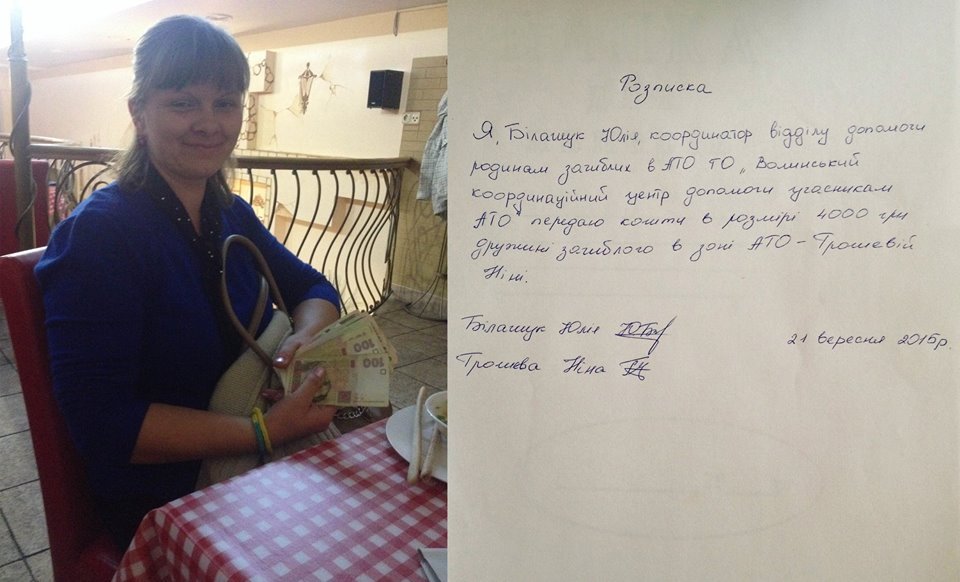 100
100
Розписка
Я, Білащук Юлія, координатор відділу допомоги
родинам загиблих в АТО ГО „Волинський
координаційний центр допомоги учасникам
АТО" передаю кошти в розмірі 4000 грн
дружині загиблого в зоні АТО - Грошевій
Ніні.
Білащук Юлія
21 вересня 2015р.
Грошева Ніна